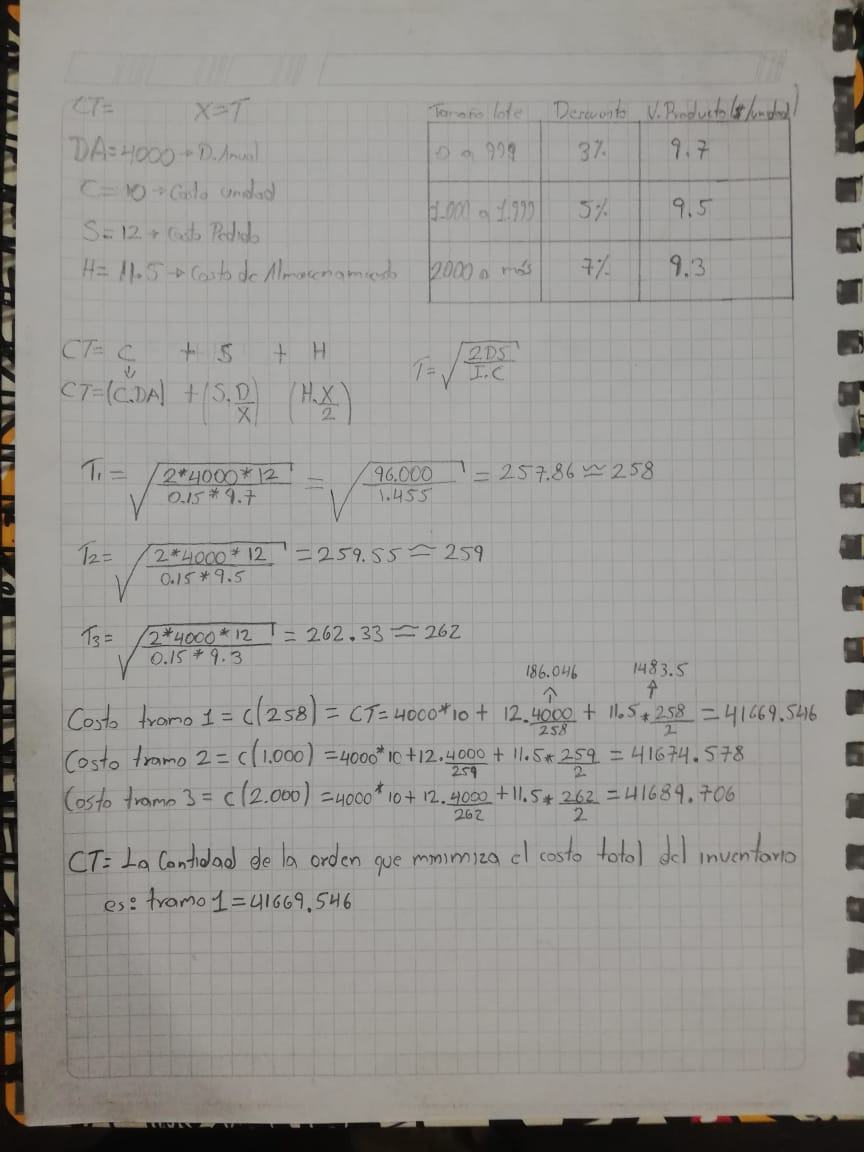 CT= X=T
DA=4000 → D. Anual
C=10 → Costo unidad
S=12 → Costo Pedido
H=11.5 → Costo de Almacenamiento
Tamaño lote Descuento V. Producto ($/unidad)
0 a 999 3% 9.7
1.000 a 1.999 5% 9.5
2000 o más 7% 9.3
CT= C + S + H
↓
CT=(C.DA) + (S.D/X) (H.X/2)
T=√(2DS/I.C)
T1 = √(2*4000*12/0.15*9.7) = √(96.000/1.455) = 257.86 ≈ 258
T2= √(2*4000*12/0.15*9.5) = 259.55 ≈ 259
T3= √(2*4000*12/0.15*9.3) = 262.33 ≈ 262
186.046 1483.5
↑ ↑
Costo tramo 1 = C(258) = CT=4000*10 + 12.4000/258 + 11.5*258/2 = 41669.546
Costo tramo 2 = C(1.000) =4000*10+12.4000/259 + 11.5*259/2 = 41674.578
Costo tramo 3 = C(2.000) =4000*10+12.4000/262 +11.5*262/2 =41689.706
CT= La Cantidad de la orden que mnimiza el costo total del inventario
es: tramo 1 =41669.546